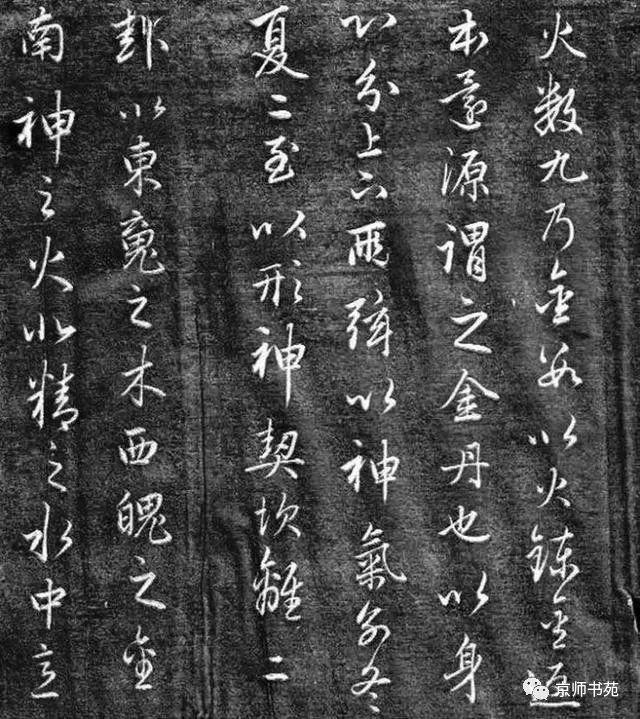 火數九乃金數以火鍊金返
本還源謂之金丹也以身
心分上下兩弦以神氣分冬
夏二至以形神契坎離二
卦以東魂之木西魄之金
南神之火北精之水中意
京师书苑